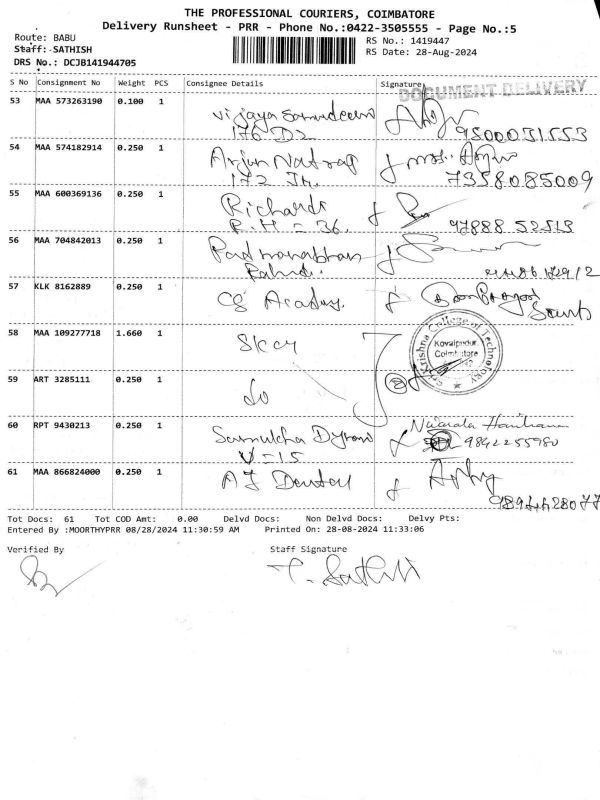 THE PROFESSIONAL COURIERS, COIMBATORE
Delivery Runsheet - PRR - Phone No.:0422-3505555 - Page No.:5
Route: BABU
RS No.: 1419447
Staff: SATHISH
RS Date: 28-Aug-2024
DRS No.: DCJB141944705
S No Consignment No Weight PCS Consignee Details Signature
DOCUMENT DELIVERY
53 MAA 573263190 0.100 1 Vijaya
176 D2 9500031553
54 MAA 574182914 0.250 1 Arjun Natraj
172 7358085009
55 MAA 600369136 0.250 1 Richards
R.H = 36. 97888 52513
56 MAA 704842013 0.250 1 Padmanabhan
57 KLK 8162889 0.250 1 CG Academy.
58 MAA 109277718 1.660 1 SKCT
Sri Krishna College of Technology
Kovaipudur,
Coimbatore
59 ART 3285111 0.250 1 do
60 RPT 9430213 0.250 1
V-15 9842255980
61 MAA 866824000 0.250 1
9894628077
Tot Docs: 61 Tot COD Amt: 0.00 Delvd Docs: Non Delvd Docs: Delvy Pts:
Entered By :MOORTHYPRR 08/28/2024 11:30:59 AM Printed On: 28-08-2024 11:33:06
Verified By Staff Signature
T. Sathish